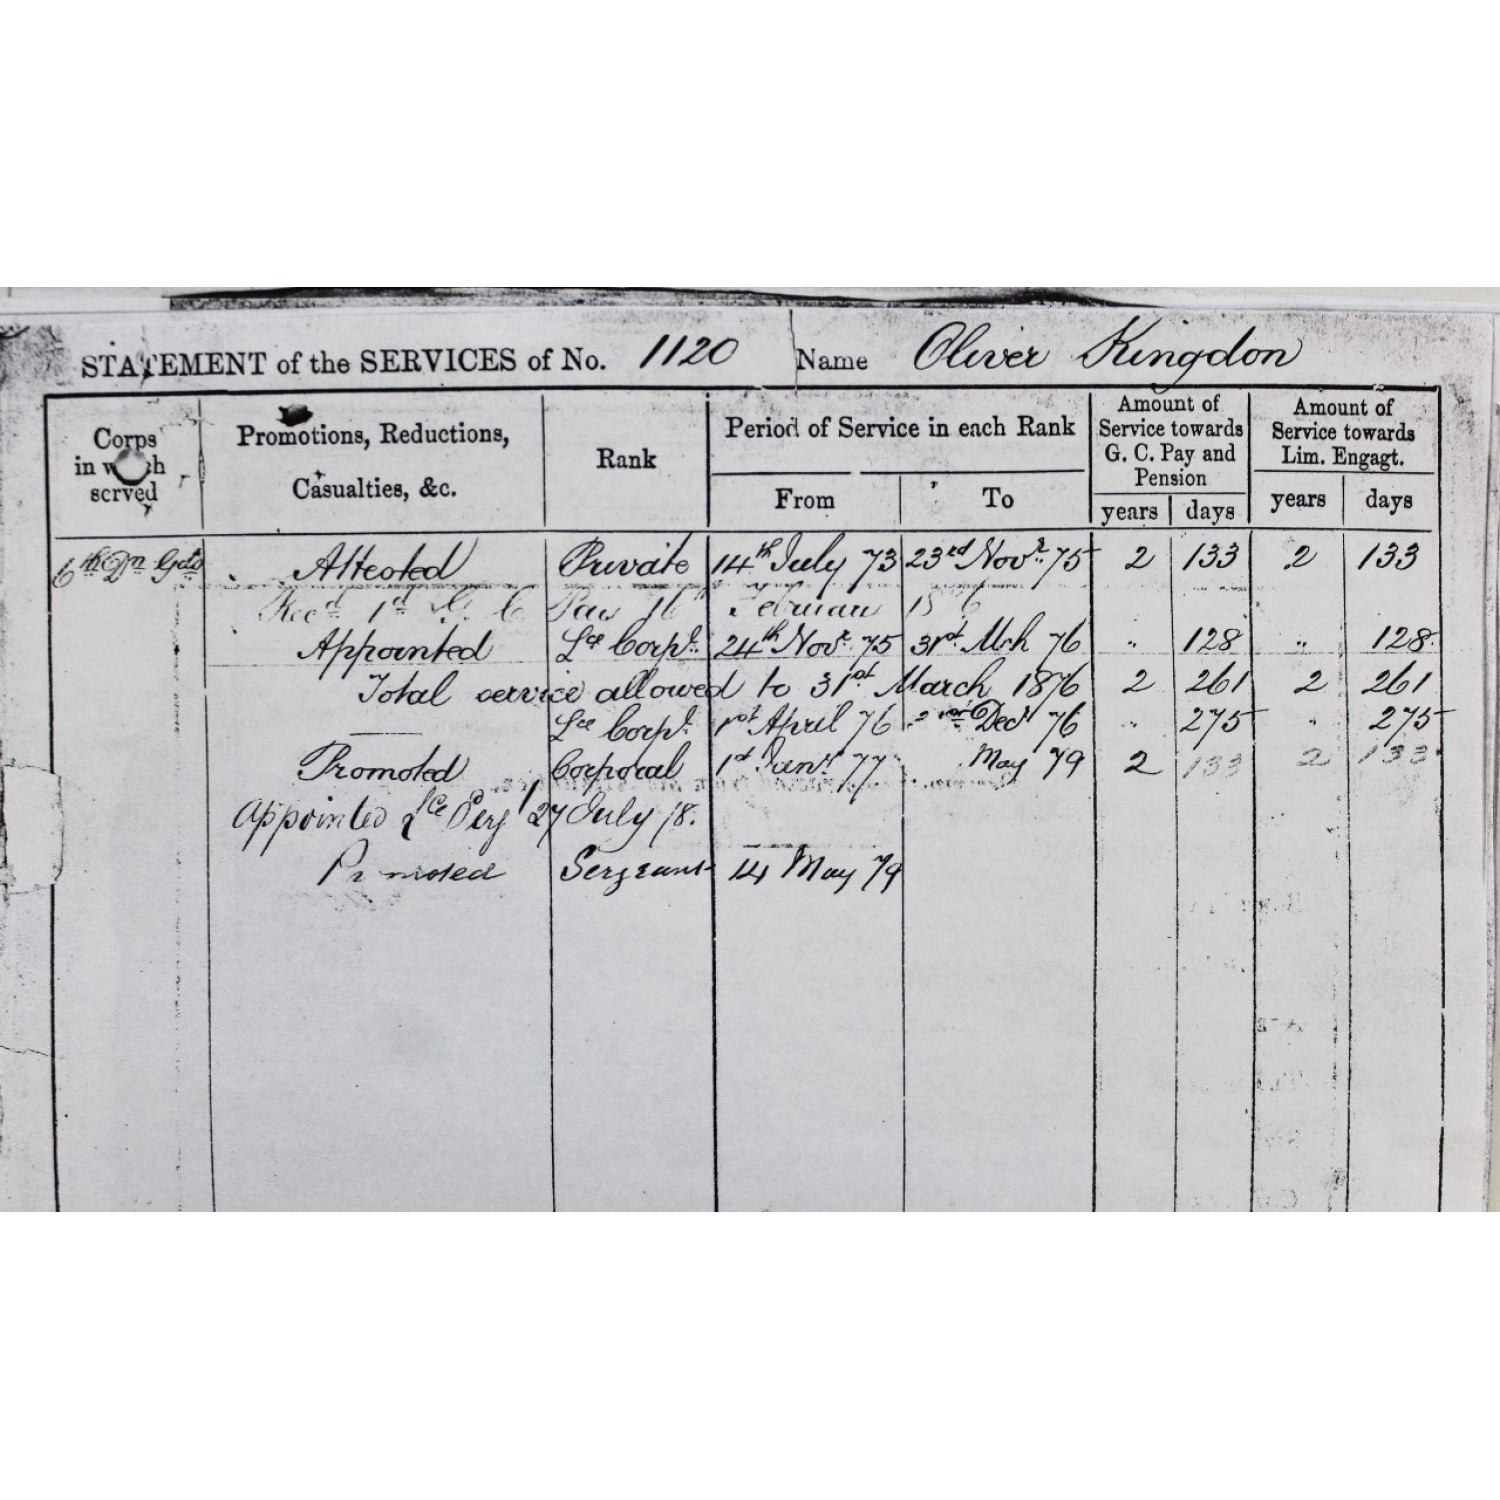 STATEMENT of the SERVICES of No. 1120 Name Oliver Kingdon
Corps in which served
Promotions, Reductions, Casualties, &c.
Rank
Period of Service in each Rank
From To
Amount of Service towards G. C. Pay and Pension
years days
Amount of Service towards Lim. Engagt.
years days
6th Dn Gds Attested Private 14th July 73 23rd Novr. 75 2 133 2 133
Recd 1d G. C Pay 16 February
Appointed Lce Corpl. 24th Novr. 75 31st Mch 76 " 128 " 128
Total service allowed to 31st March 1876 2 261 2 261
Lce Corpl. 1st April 76 Decr 76 " 275 " 275
Promoted Corporal 1st Jany 77 May 79 2 133 2 133
Appointed Lce Serjt 27 July 78.
Promoted Sergeant 14 May 79